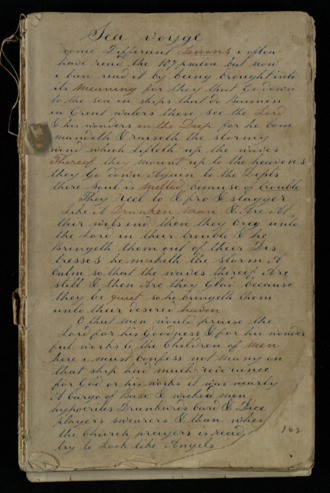 Sea voyge
some Different Lessons i often
have read the 107 psalm but now
i can read it by being brought into
its Meaning for they that Go down
to the sea in ships that do business
in Great waters these see the Lord
& his wonders in the Deep for he com
mandeth & raiseth the stormy
wind which lifteth up the waves
Thereof they mount up to the heavens
they Go down Again to the Depts
there soul is melted because of trouble
They reel to & fro & stagger
Like A Drunken Man & Are At
their wits end then they Cry unto
the Lord in their trouble & he
Bringeth them out of their Dis
tresses he maketh the storm A
Calm so that the waves thereof Are
still & then Are they Glad because
they be quiet so he bringeth them
unto their desired haven
O that men would praise the
Lord for his Goodness & for his wonder
ful works to the Children of men
here i must confess not many on
that ship had much reverance
for God or his works it was nearly
A Cargo of Base & wicked men
hypocrites Drunkards Card & Dice
players swearers & than when
the Church prayers is read
try to Look like Angels
162